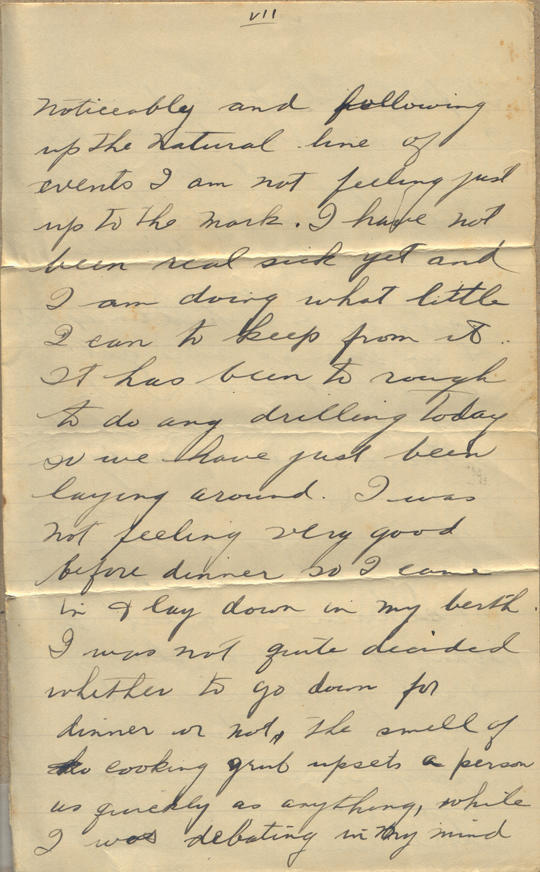 VII
noticeably and following
up the natural line of
events I am not feeling just
up to the mark. I have not
been real sick yet and
I am doing what little
I can to keep from it.
It has been to rough
to do any drilling today
so we have just been
laying around. I was
not feeling very good
before dinner so I came
in & lay down in my berth.
I was not quite decided
whether to go down for
dinner or not, the smell of
cooking grub upsets a person
as quickly as anything, while
I was debating in my mind